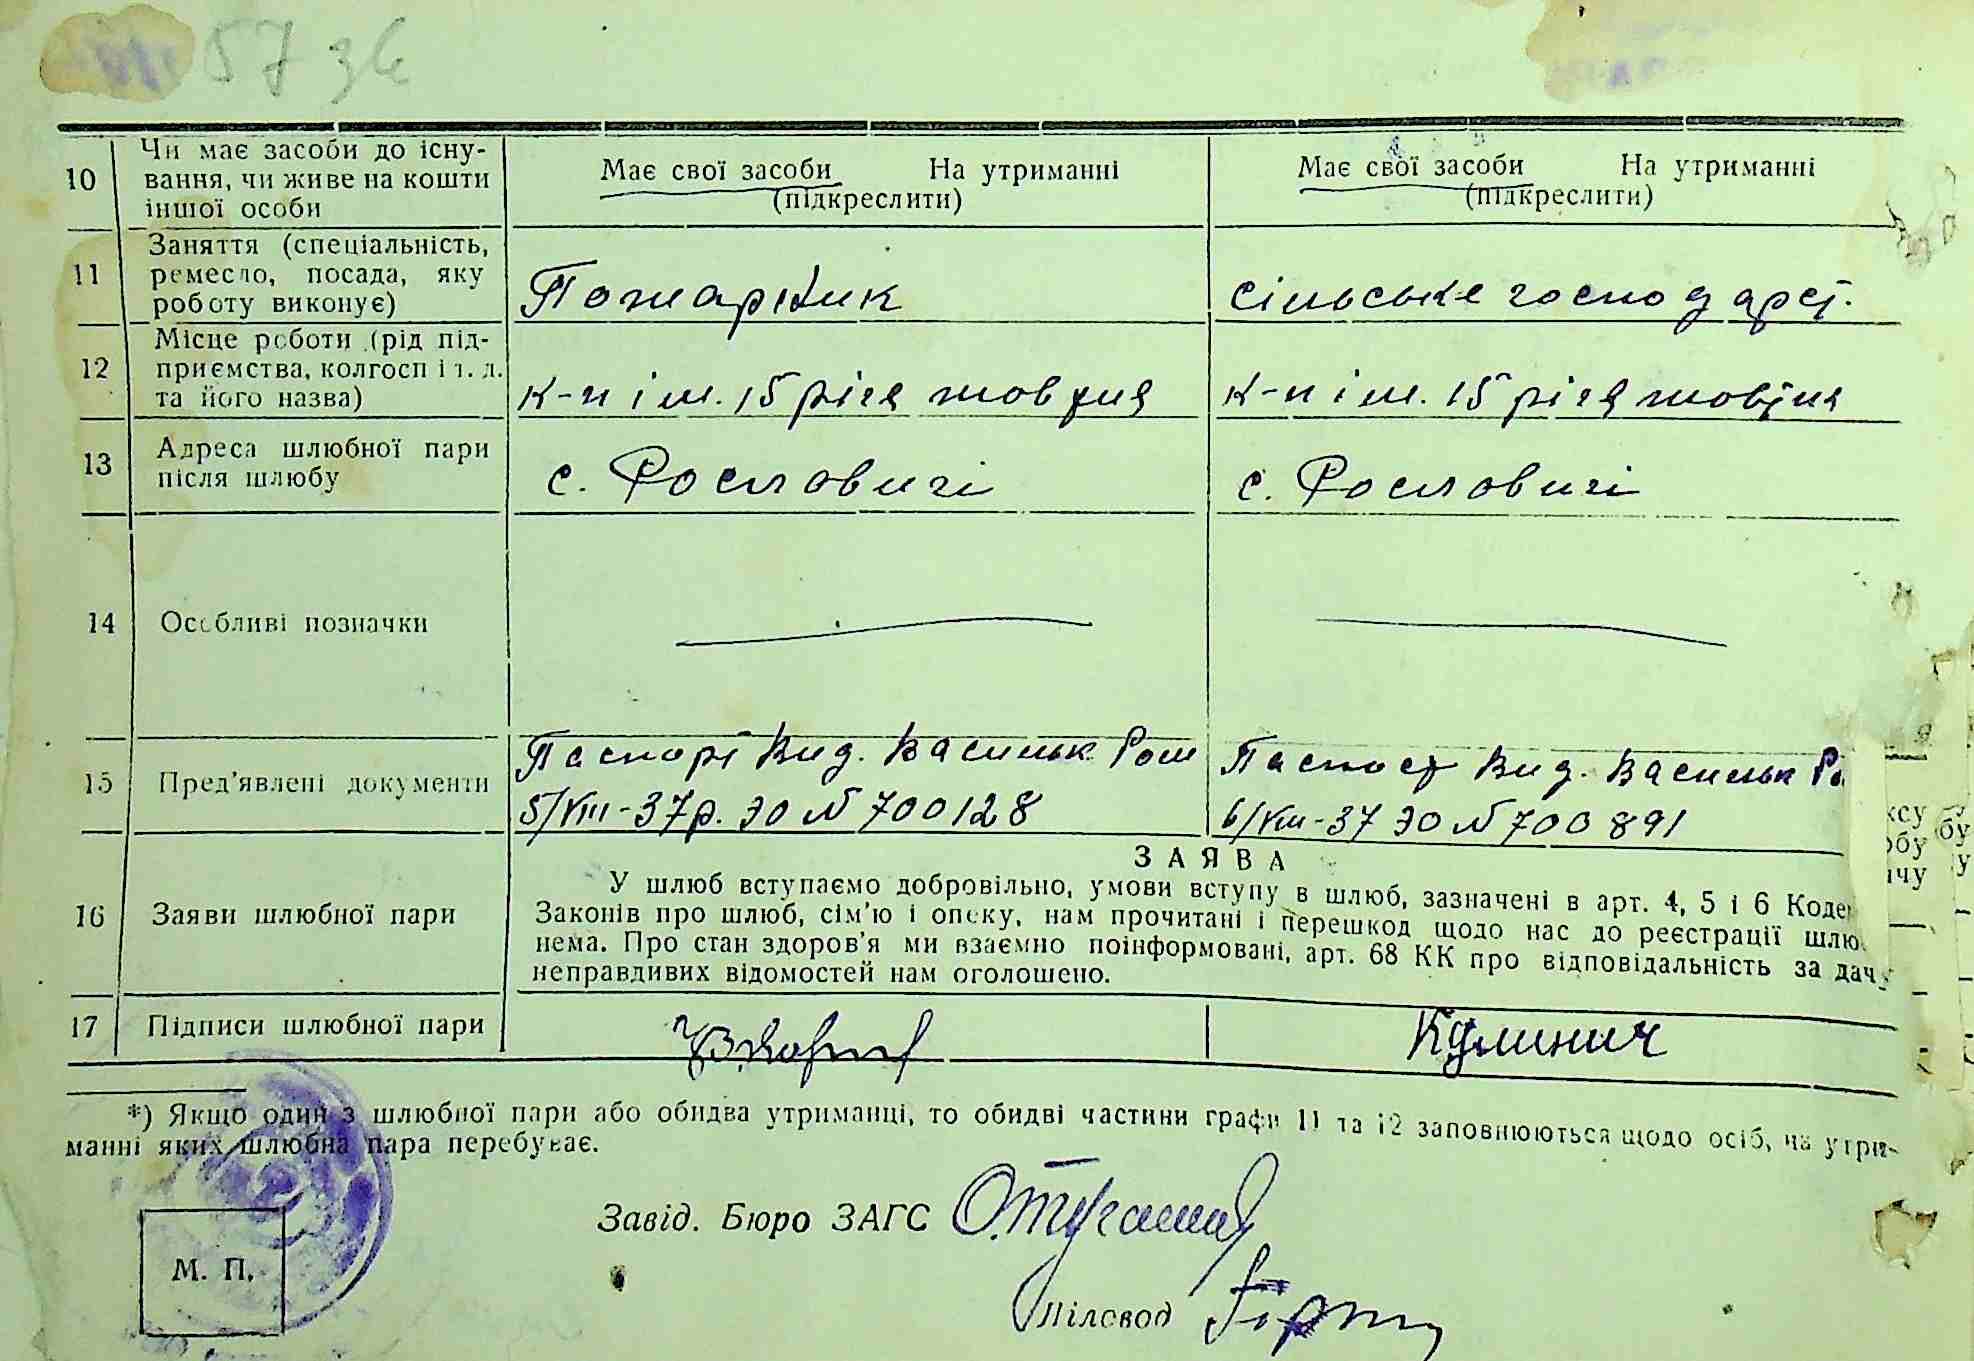 57 зв
10 Чи має засоби до існу-
вання, чи живе на кошти
іншої особи
Має свої засоби На утриманні
(підкреслити)
Має свої засоби На утриманні
(підкреслити)
11 Заняття (спеціальність,
ремесло, посада, яку
роботу виконує)
Пожарник
сільське господарст.
12 Місце роботи (рід під-
приємства, колгосп і т. д.
та його назва)
к-п ім. 15 річя жовтня
к-п ім. 15 річя жовтня
13 Адреса шлюбної пари
після шлюбу
с. Рославичі
с. Рославичі
14 Особливі позначки
15 Пред'явлені документи
Паспорт Вид. Васильк Ром
5/VIII-37р. ЭО № 700128
Паспорт Вид. Васильк
6/VIII-37 ЭО № 700891
16 Заяви шлюбної пари
ЗАЯВА
У шлюб вступаємо добровільно, умови вступу в шлюб, зазначені в арт. 4, 5 і 6 Коде
Законів про шлюб, сім'ю і опеку, нам прочитані і перешкод щодо нас до реєстрації шлю
нема. Про стан здоров'я ми взаємно поінформовані, арт. 68 КК про відповідальність за дач
неправдивих відомостей нам оголошено.
17 Підписи шлюбної пари
Кулинич
*) Якщо один з шлюбної пари або обидва утриманці, то обидві частини графи 11 та 12 заповнюються щодо осіб, на утри-
манні яких шлюбна пара перебуває.
Завід. Бюро ЗАГС
М. П.
Діловод